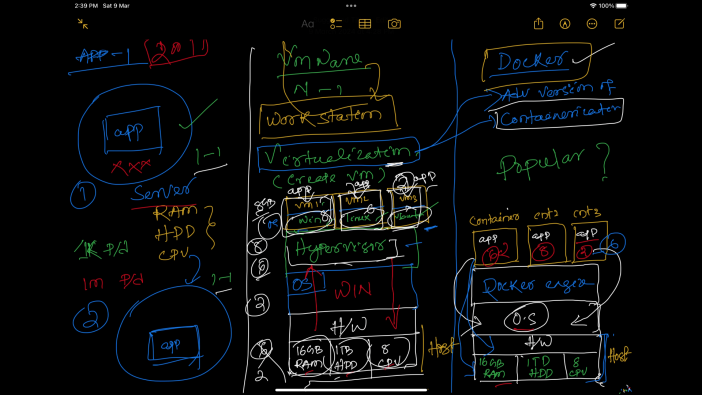 2:39 PM Sat 9 Mar
100%
Aa
APP-1
app
XXX
1-1
①
Server
RAM
HDD
CPU
1K P/d
1m P/d
1-1
②
app
VmNane
N-1
Work Station
Virtualization
(Create Vm)
app
app
app
8GB
vm1
vm2
vm3
Win
Linux
8
Hypervisor
OS
WIN
H/W
16GB RAM
1TB HDD
8 CPU
Host
2
Docker
Adv version of
Containerization
Popular?
Container
cnt2
cnt3
app
app
app
8
Docker engine
O.S
H/W
16GB RAM
1TD HDD
8 CPU
Host